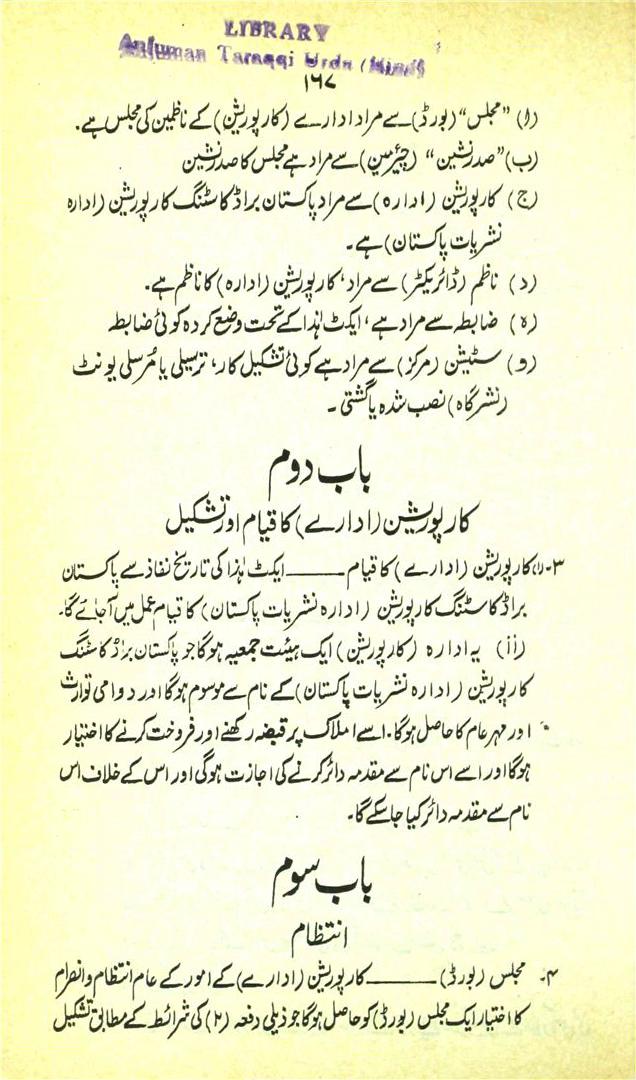 LIBRARY
Anjuman Taraqqi Urdu (Hind)
۱۶۷
(ا) ”مجلس“ (بورڈ) سے مراد ادارے (کارپوریشن) کے ناظمین کی مجلس ہے۔
(ب) ”صدر نشین“ (چیئرمین) سے مراد ہے مجلس کا صدر نشین
(ج) کارپوریشن (ادارہ) سے مراد پاکستان براڈکاسٹنگ کارپوریشن (ادارہ
نشریات پاکستان) ہے۔
(د) ناظم (ڈائریکٹر) سے مراد، کارپوریشن (ادارہ) کا ناظم ہے۔
(ہ) ضابطہ سے مراد ہے، ایکٹ لہٰذا کے تحت وضع کردہ کوئی ضابطہ
(و) سٹیشن (مرکز) سے مراد ہے کوئی تشکیل کار، ترسیلی یا مُرسلی یونٹ
(نشرگاہ) نصب شدہ یا گشتی۔
باب دوم
کارپوریشن (ادارے) کا قیام اور تشکیل
۳۔ (i) کارپوریشن (ادارے) کا قیام ـــــ ایکٹ لہٰذا کی تاریخ نفاذ سے پاکستان
براڈکاسٹنگ کارپوریشن (ادارہ نشریات پاکستان) کا قیام عمل میں آجائے گا۔
(ii) یہ ادارہ (کارپوریشن) ایک ہیئت جمعیہ ہوگا جو پاکستان براڈکاسٹنگ
کارپوریشن (ادارہ نشریات پاکستان) کے نام سے موسوم ہوگا اور دوامی توارث
اور مہر عام کا حاصل ہوگا۔ اسے املاک پر قبضہ رکھنے اور فروخت کرنے کا اختیار
ہوگا اور اسے اس نام سے مقدمہ دائر کرنے کی اجازت ہوگی اور اس کے خلاف اس
نام سے مقدمہ دائر کیا جاسکے گا۔
باب سوم
انتظام
۴۔ مجلس (بورڈ) ـــــ کارپوریشن (ادارے) کے امور کے عام انتظام و انصرام
کا اختیار ایک مجلس (بورڈ) کو حاصل ہوگا جو ذیلی دفعہ (۲) کی شرائط کے مطابق تشکیل